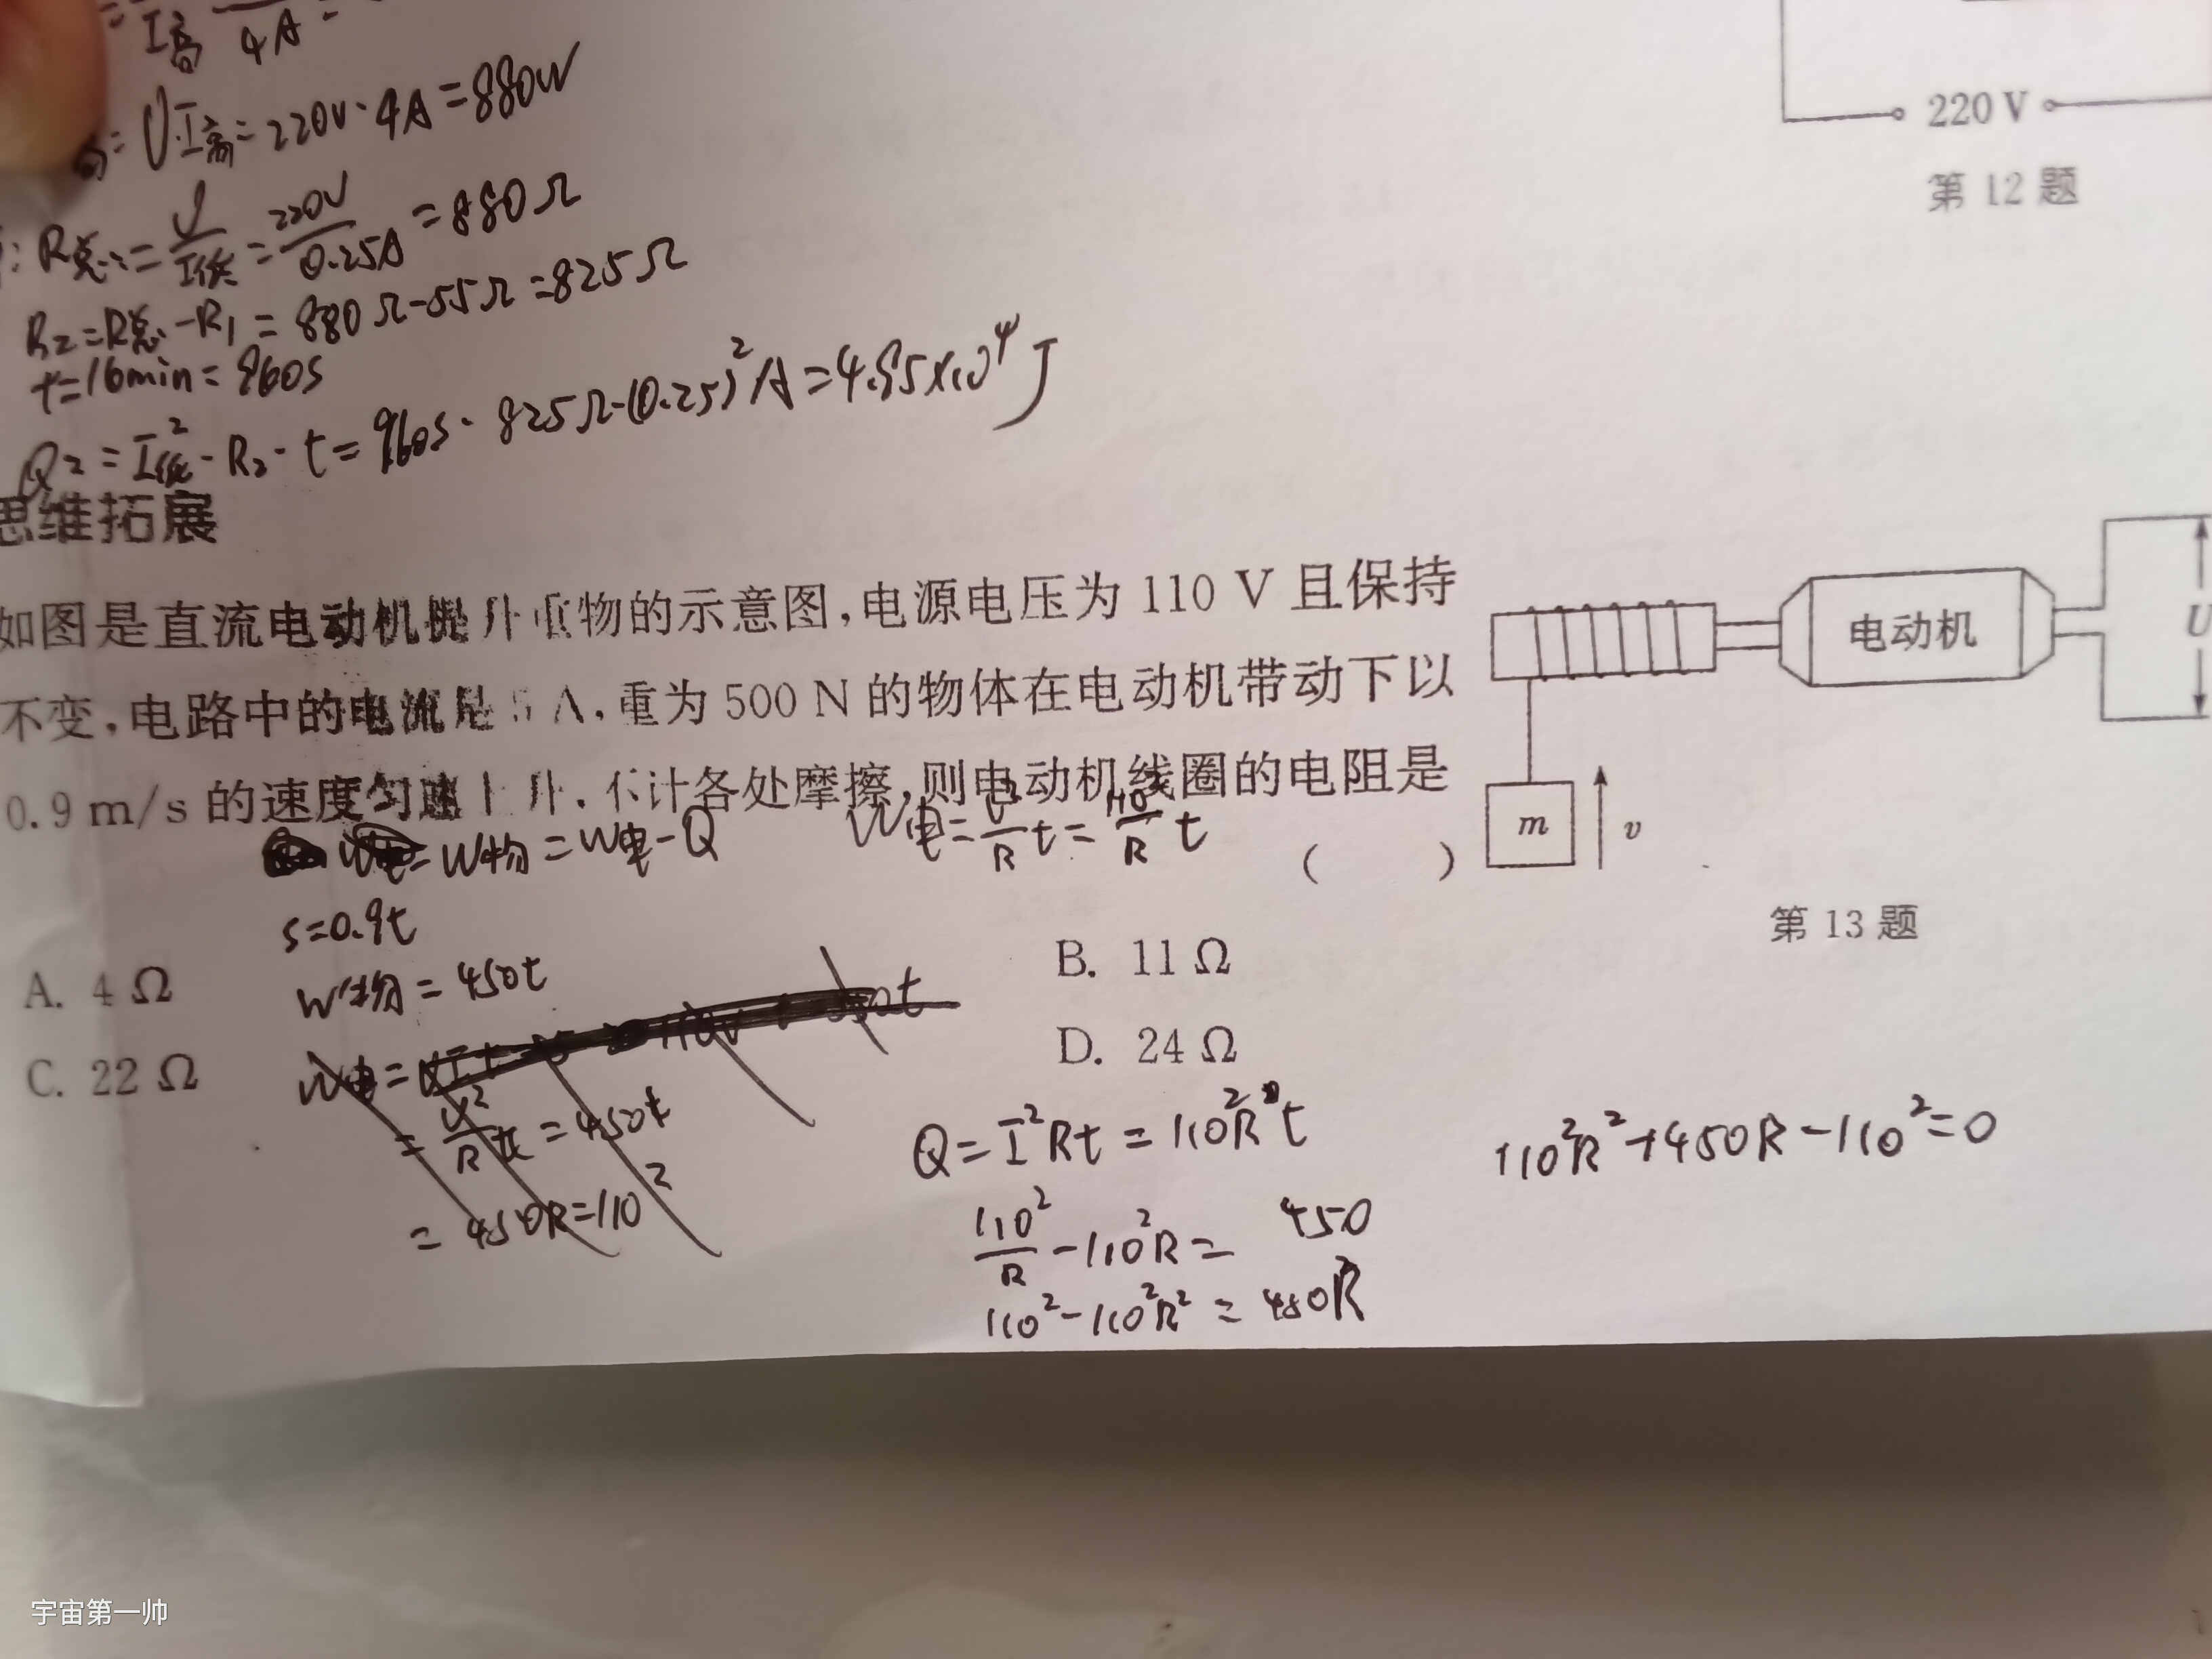 I高 4A
=UI高=220V·4A=880W
R总=U/I低=220V/0.25A=880Ω
R2=R总-R1=880Ω-55Ω=825Ω
t=16min=960s
Q2=I低²·R2·t=960s·825Ω·(0.25)²A=4.95×10⁴J
220 V
第 12 题
思维拓展
如图是直流电动机提升重物的示意图,电源电压为 110 V 且保持
不变,电路中的电流是 5 A,重为 500 N 的物体在电动机带动下以
0.9 m/s 的速度匀速上升,不计各处摩擦,则电动机线圈的电阻是
( )
W物=W电-Q
W电=U²/R t=110²/R t
s=0.9t
W物=450t
A. 4 Ω
B. 11 Ω
C. 22 Ω
D. 24 Ω
W电=UIt
=U²/R t=450t
=450R=110²
Q=I²Rt=110²Rt
110²/R-110²R=450
110²-110²R²=450R
110²R²+450R-110²=0
电动机
U
m
v
第 13 题
宇宙第一帅